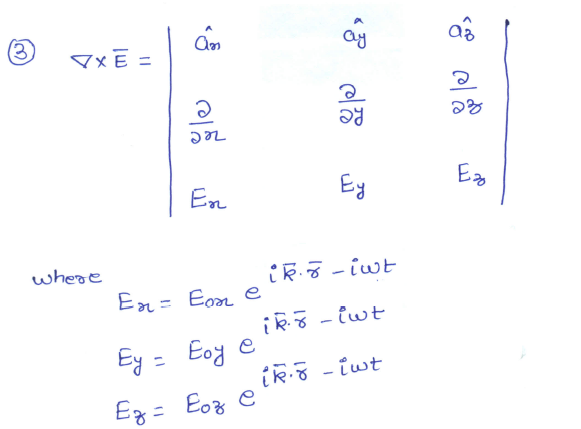 ③ ∇×E̅ = | âx ây âz |
| ∂/∂x ∂/∂y ∂/∂z |
| Ex Ey Ez |
where
Ex = E₀x e^{i k̅.r̅ - iωt}
Ey = E₀y e^{i k̅.r̅ - iωt}
Ez = E₀z e^{i k̅.r̅ - iωt}